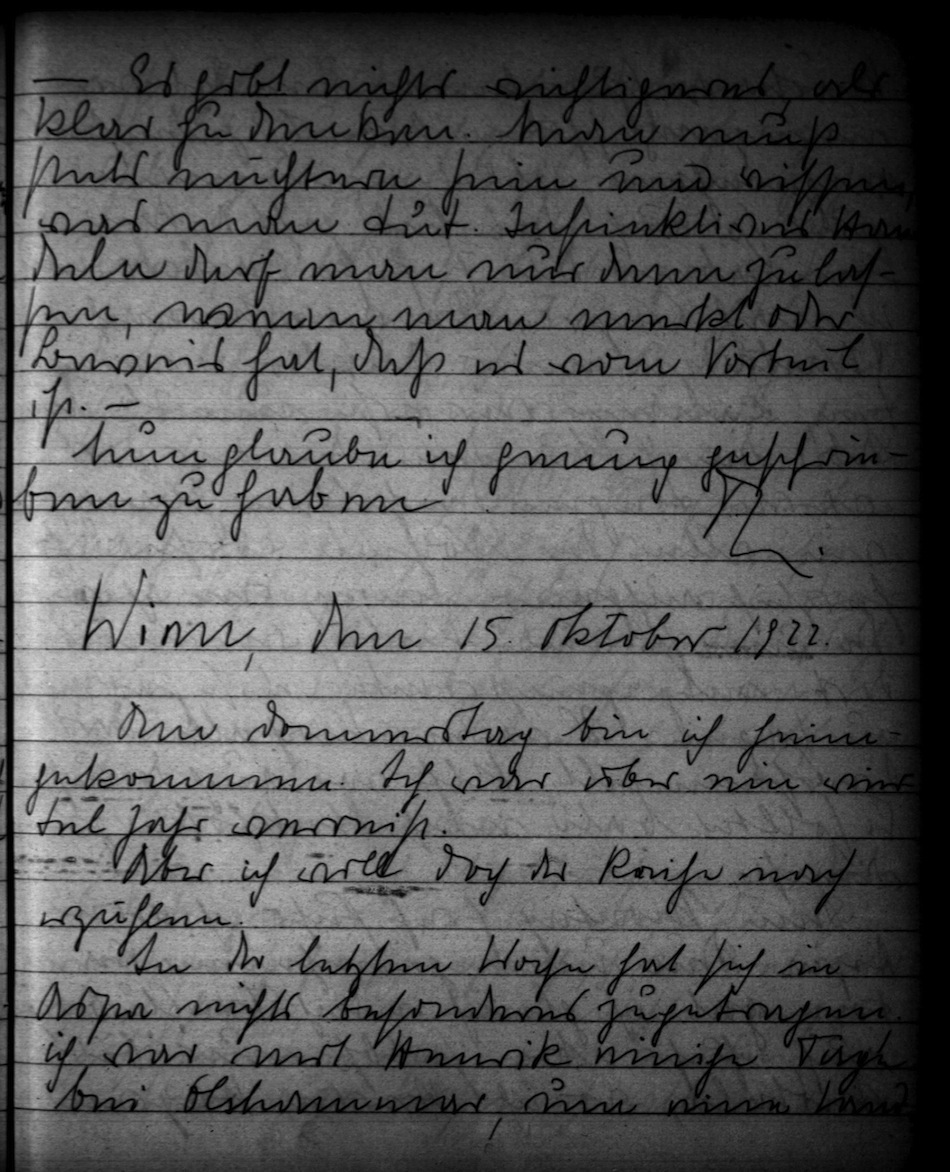 — Es gibt nichts wichtigeres, als
klar zu denken. Man muß
stets nüchtern sein und wissen,
was man tut. Instinktives Han
deln darf man nur dann zulas-
sen, wenn man merkt oder
Beweis hat, daß es vom Vorteil
ist. —
Nun glaube ich genug geschrie-
ben zu haben
Wien, den 15. Oktober 1922.
Am Donnerstag bin ich heim-
gekommen. Ich war über ein vier
tel Jahr verreist.
Aber ich will doch der Reihe nach
erzählen.
In der letzten Woche hat sich in
Aspa nichts besonderes zugetragen.
ich war mit Henrik einige Tage
bei Olshammar, um eine Land